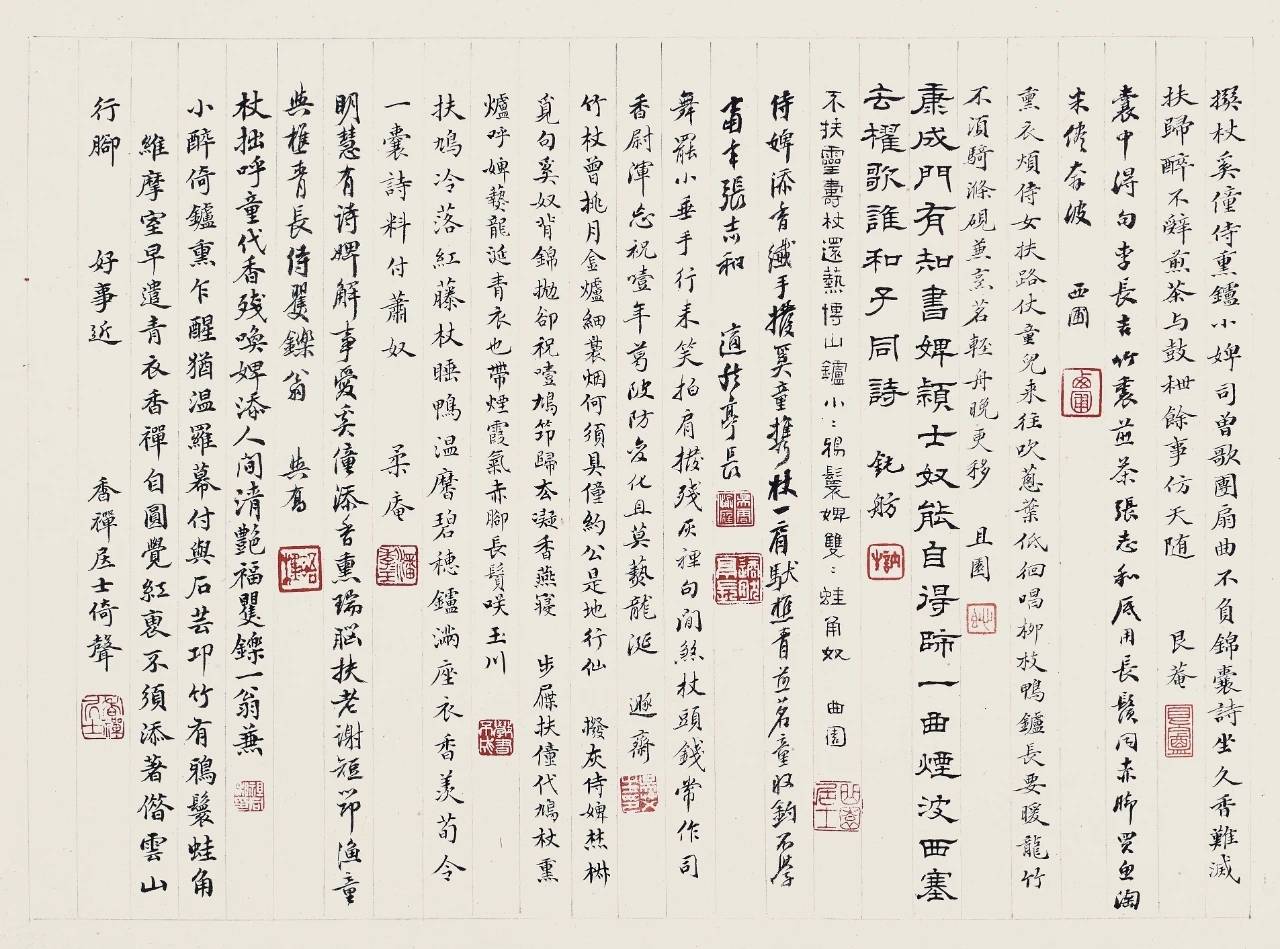 撰杖奚僮侍熏鑪小婢司曾歌團扇曲不負錦囊詩坐久香難滅
扶歸醉不辤煎茶与鼓枻餘事仿天随 艮菴
囊中得句李長吉竹裏煎茶張志和底用長鬚同赤脚買魚淘
米儘奔波 西圃
熏衣煩侍女扶路仗童兒来往吹蔥葉低徊唱柳枝鴨鑪長要暖龍竹
不湏騎滌硯兼烹茗輕舟晚更移 且園
康成門有知書婢穎士奴能自得師一曲煙波西塞
去櫂歌誰和子同詩 鈍舫
不扶靈壽杖還爇博山鑪小:鴉鬟婢雙:蛙角奴 曲園
侍婢添香纖手撥奚童攜杖一肩馱樵青煎茗童收釣不學
當年張志和 適然亭長
舞罷小垂手行来笑拍肩撥殘灰裡句閒煞杖頭錢常作司
香尉渾忘祝噎年葛陂防变化且莫爇龍涎 遯齋
竹杖曾挑月金爐細裊烟何須具僮約公是地行仙 撥灰侍婢焚椒
覓句奚奴背錦拋卻祝噎鳩笻歸去凝香燕寢 步屧扶僮代鳩杖熏
爐呼婢爇龍涎青衣也帶煙霞氣赤腳長鬚咲玉川
扶鳩冷落紅藤杖睡鴨温麐碧穗鑪滿座衣香羡荀令
一囊詩料付蕭奴 柔庵
明慧有诗婢解事愛奚僮添香熏瑞脳扶老谢短笻漁童
與樵青長侍矍鑠翁 與為
杖拙呼童代香残喚婢添人间清艷福矍鑠一翁兼
小醉倚鑪熏乍醒猶温羅幕付與石芸邛竹有鴉鬟蛙角
維摩室早遣青衣香禪自圓覺紅裏不須添著偕雲山
行腳 好事近 香禪居士倚聲